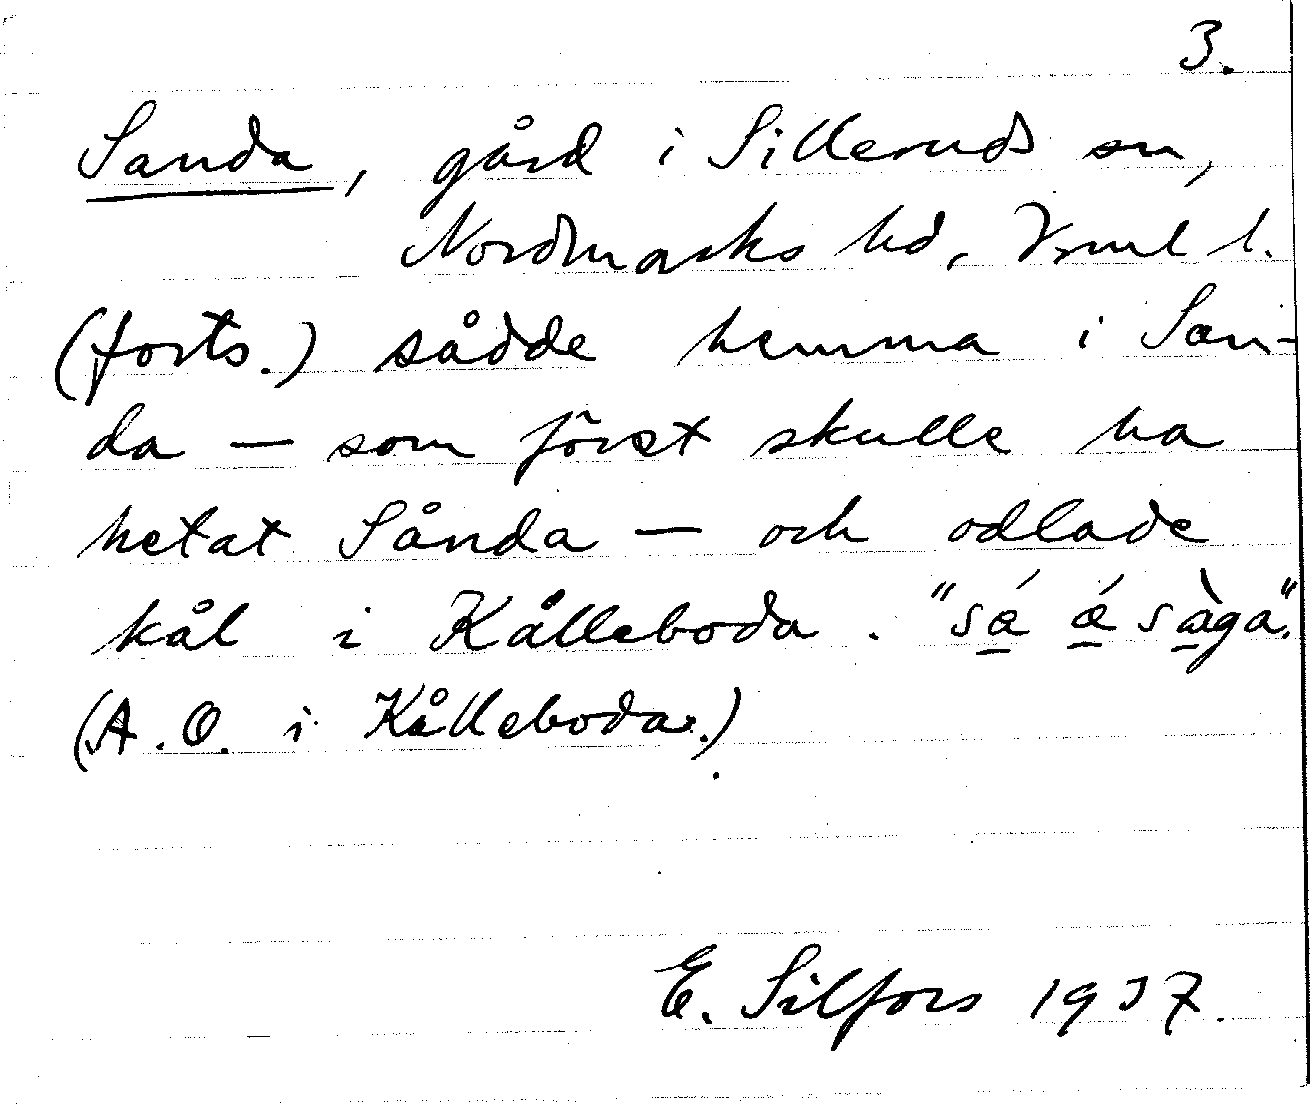 3.
Sanda, gård i Silleruds sn,
Nordmarks hd, Vrml l.
(forts.) sådde hemma i San-
da — som först skulle ha
hetat Sånda — och odlade
kål i Kålleboda. "sǽ ǽ sàga".
(A. O. i Kålleboda.)
E. Silfors 1937.